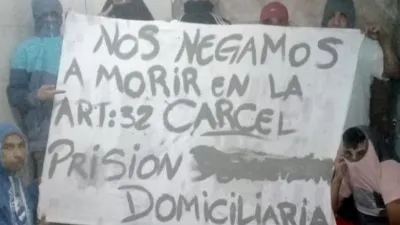 NOS NEGAMOS
A MORIR EN LA
ART:32 CARCEL
PRISION
DOMICILIARIA